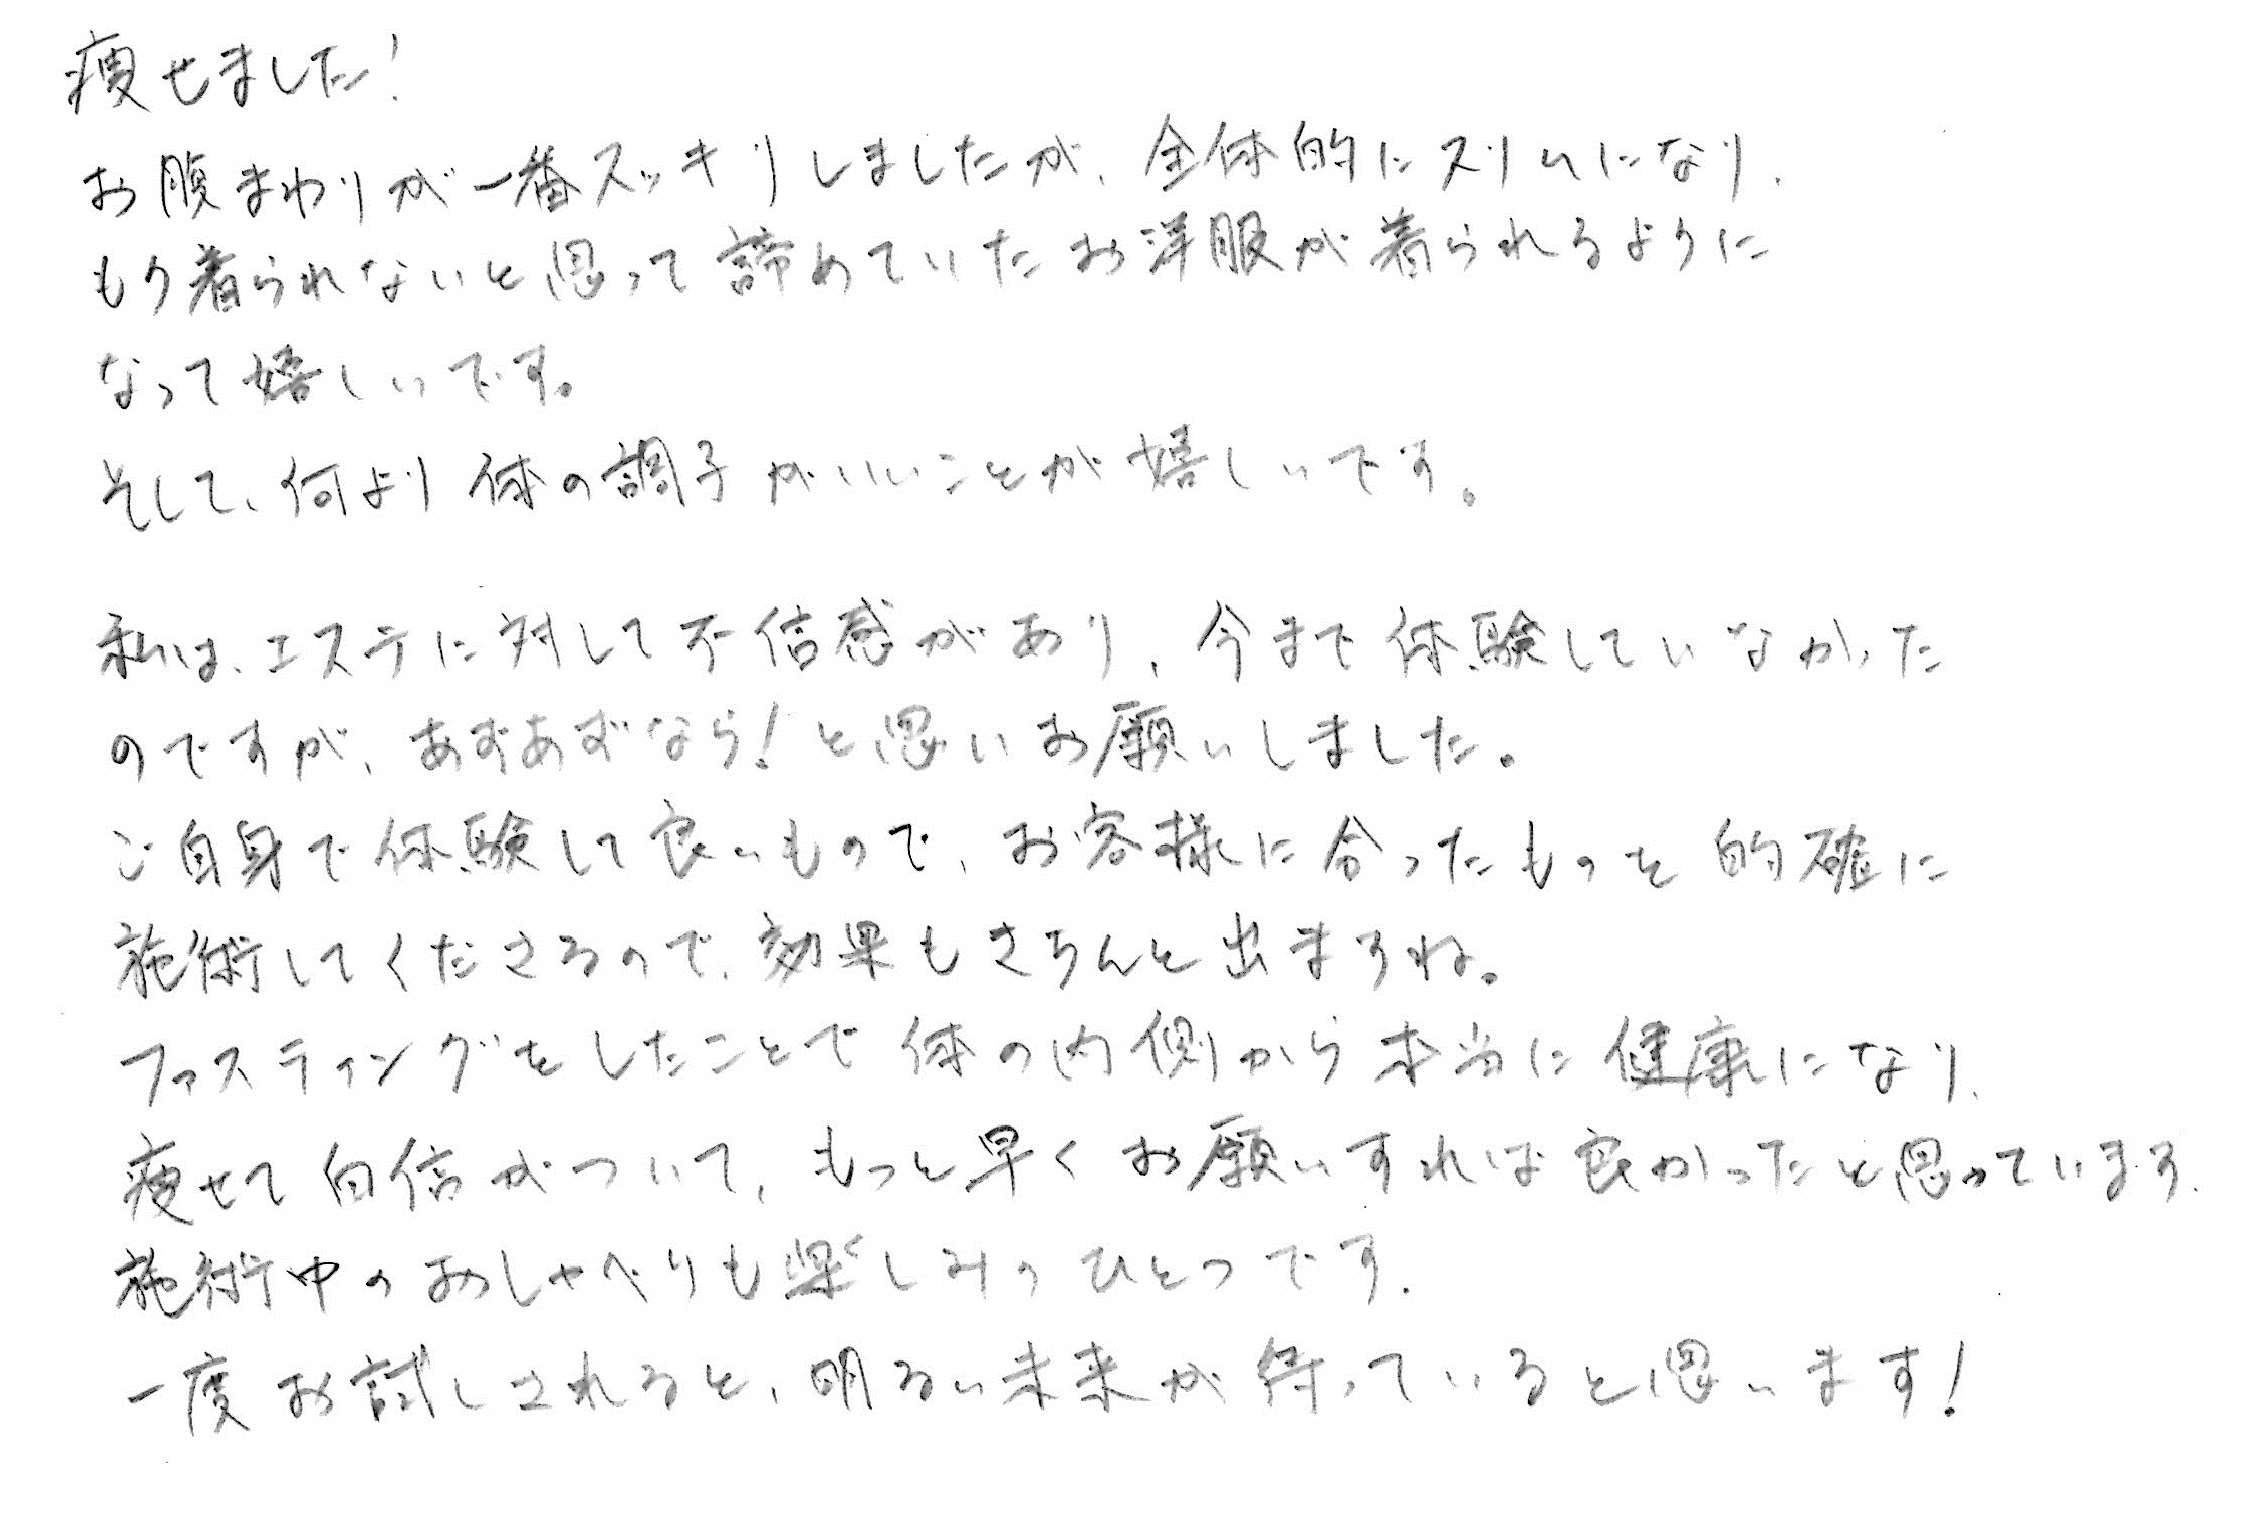 痩せました!
お腹まわりが一番スッキリしましたが、全体的にスリムになり、
もう着られないと思って諦めていたお洋服が着られるように
なって嬉しいです。
そして、何より体の調子がいいことが嬉しいです。
私は、エステに対して不信感があり、今まで体験していなかった
のですが、あずあずなら!と思いお願いしました。
ご自身で体験して良いもので、お客様に合ったものを的確に
施術してくださるので、効果もきちんと出ますね。
ファスティングをしたことで体の内側から本当に健康になり、
痩せて自信がついて、もっと早くお願いすれば良かったと思っています。
施術中のおしゃべりも楽しみのひとつです。
一度お試しされると、明るい未来が待っていると思います!